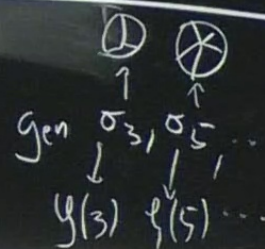 gen σ₃, σ₅, ...
ζ(3) ζ(5) ...